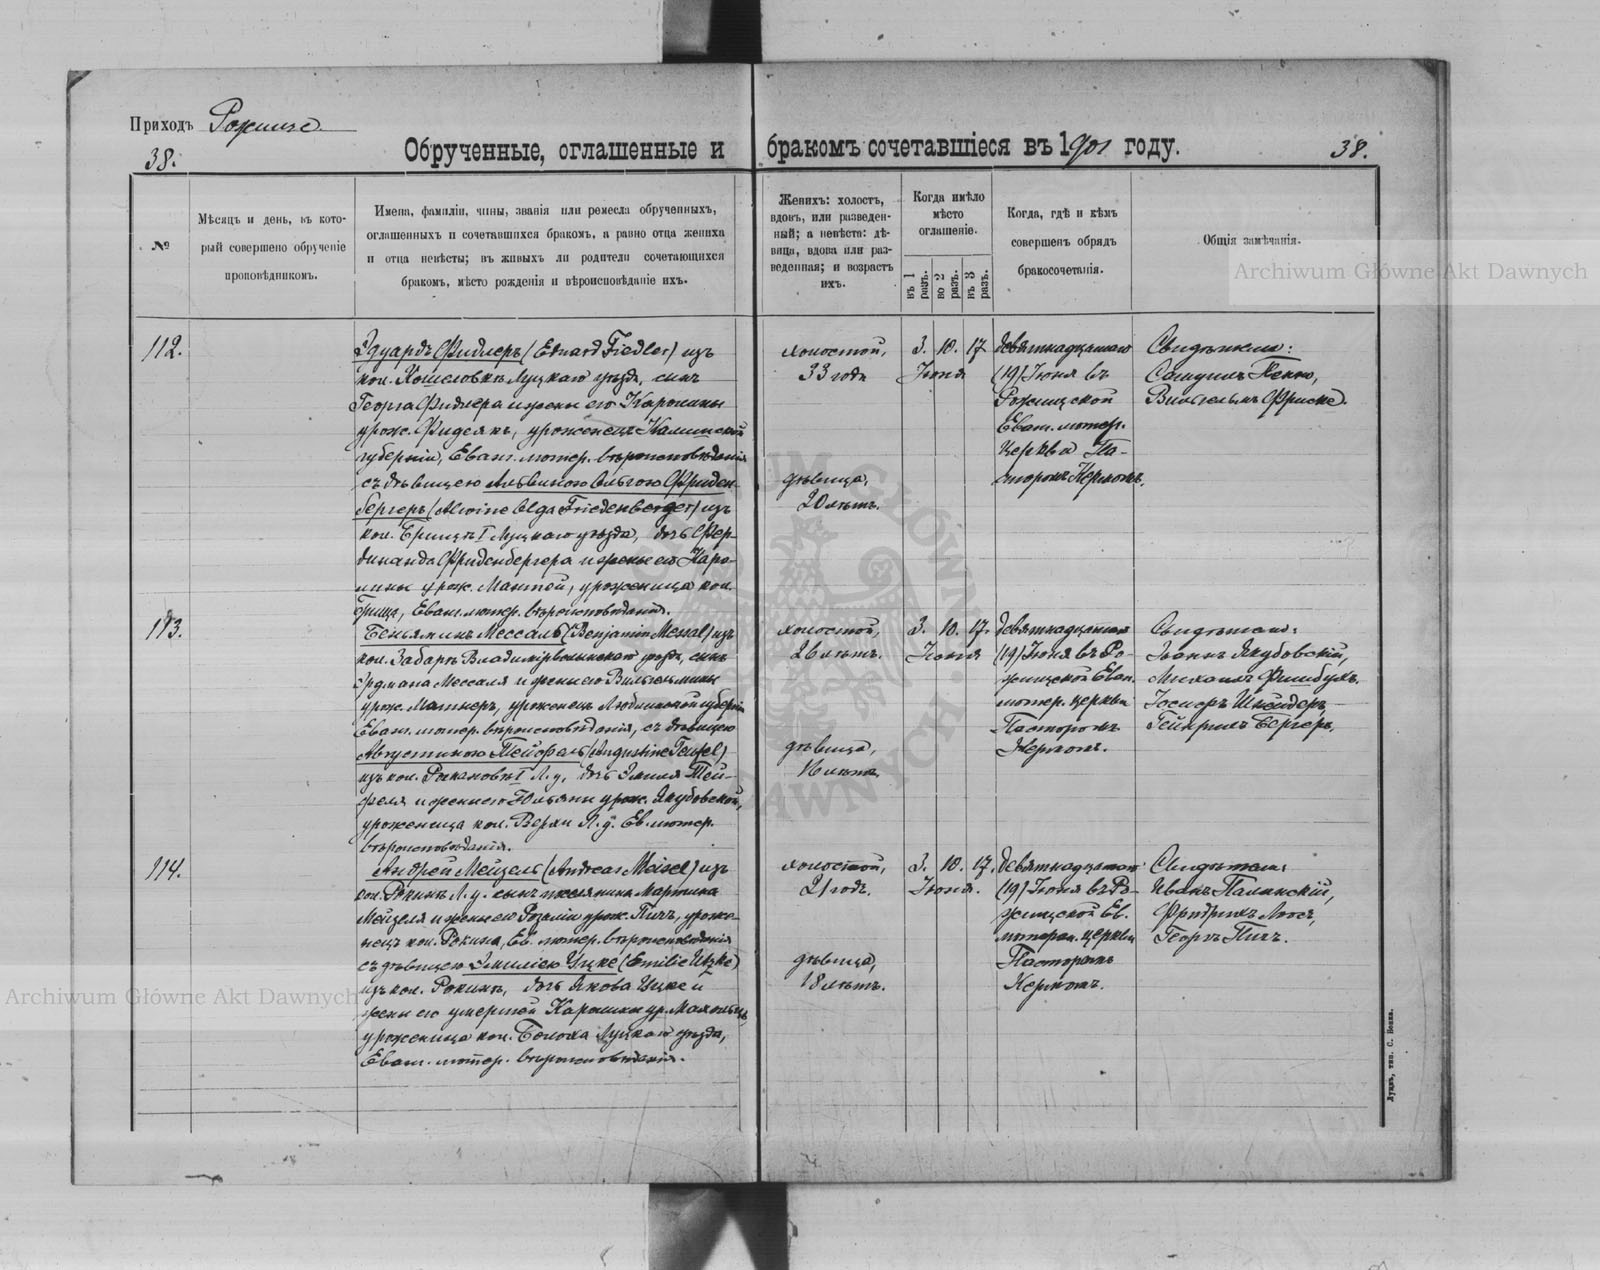 Приходъ Рожище
38.
Обрученные, оглашенные и бракомъ сочетавшіеся въ 1901 году.
38.
№
Мѣсяцъ и день, въ кото-
рый совершено обрученіе
проповѣдникомъ.
Имена, фамиліи, чины, званія или ремесла обрученныхъ,
оглашенныхъ и сочетавшихся бракомъ, а равно отца жениха
и отца невѣсты; въ живыхъ ли родители сочетающихся
бракомъ, мѣсто рожденія и вѣроисповѣданіе ихъ.
Женихъ: холостъ,
вдовъ, или разведен-
ный; а невѣста: дѣ-
вица, вдова или раз-
веденная; и возрастъ
ихъ.
Когда имѣло
мѣсто
оглашеніе.
въ 1 разъ.
во 2 разъ.
въ 3 разъ.
Когда, гдѣ и кѣмъ
совершенъ обрядъ
бракосочетанія.
Общія замѣчанія.
112.
Эдуардъ Фидлеръ (Eduard Fiedler) изъ
кол. Кошеловкѣ Луцкаго уѣзда, сынъ
Георга Фидлера и жены его Каролины
урож. , уроженецъ
губерніи, Еванг. лютер. вѣроисповѣданія
съ дѣвицею Альвиною Ольгою Фриден-
бергеръ (Alwine Olga Friedenberger) изъ
кол. I Луцкаго уѣзда, дочь Фер-
динанда Фриденбергера и жены его Каро-
лины урож. Мантей, уроженица кол.
, Еванг. лютер. вѣроисповѣданія.
холостой,
33 года
дѣвица,
20 лѣтъ.
3. 10. 17
Іюня
девятнадцатаго
(19) Іюня въ
Рожищской
Еванг. лютер.
церкви Па-
сторомъ Керномъ.
Свидѣтели:
Самуилъ ,
Вильгельмъ Фриске.
113.
Беньяминъ Мессаль (Benjamin Messal) изъ
кол. Забара Владимірволынскаго уѣзда, сынъ
Эрдмана Мессаля и жены его Вильгельмины
урож. , уроженецъ Люблинской губерніи
Еванг. лютер. вѣроисповѣданія, съ дѣвицею
Августиною Тейфель (Augustine Teufel)
изъ кол. I Л. у., дочь Эмиля Тей-
феля и жены его Юльяны урож. Якубовской,
уроженица кол. Верхи Л. у. Ев. лютер.
вѣроисповѣданія.
холостой,
26 лѣтъ.
дѣвица,
лѣтъ.
3. 10. 17.
Іюня
девятнадцатаго
(19) Іюня въ Ро-
жищской Еван.
лютер. церкви
Пасторомъ
Керномъ.
Свидѣтели:
Іоанъ Якубовскій,
Михаилъ Фишбухъ.
Іосифъ Шнейдеръ,
Гейнрихъ Бергеръ.
114.
Андрей Мейзель (Andreas Meisel) изъ
кол. Рокинъ Л. у. сынъ поселянина Мартина
Мейзеля и жены его Розаліи урож. Пичъ, уроже-
нецъ кол. Рокина, Ев. лютер. вѣроисповѣданія
съ дѣвицею Эмиліею Уцке (Emilie Utzke)
изъ кол. Рокинъ, дочь Якова Уцке и
жены его умершей Каролины ур.
уроженица кол. Луцкаго уѣзда,
Еванг. лютер. вѣроисповѣданія.
холостой,
21 годъ.
дѣвица,
18 лѣтъ.
3. 10. 17.
Іюня.
девятнадцатаго
(19) Іюня въ Ро-
жищской Ев.
лютеран. церкви
Пасторомъ
Керномъ.
Свидѣтели:
Иванъ Палинскій,
Фридрихъ ,
Георгъ Пичъ.
Луцкъ, тип. С. Бонка.
Archiwum Główne Akt Dawnych
Archiwum Główne Akt Dawnych